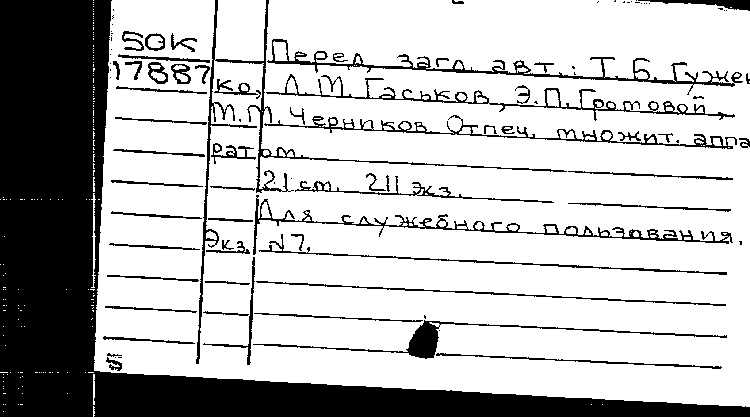 50К
17887
Перед. загл. авт.: Т. Б. Гужен
ко, Л. М. Гаськов, Э. П. Громовой,
М. М. Черников. Отпеч. множит. аппа
ратом.
21 ст. 211 экз.
Для служебного пользавания.
Экз. N7.
5